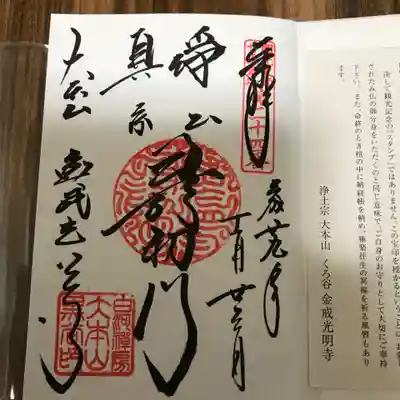 決して観光記念の「スタンプ」ではありません。この宝印を授かるということは、
されたみ仏の御分身をいただくのと同じ意味で、ご自身のお守りとして大切にご奉持
下さい。また、命終のとき棺の中に納経帳を納め、極楽往生の冥福を祈る風習もあり
ます。
浄土宗 大本山 くろ谷 金戒光明寺
奉拝
浄土
真宗
最初門
大本山 金戒光明寺
白河禅房
大本山